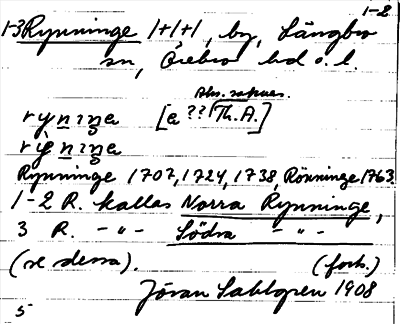 1-2
1-3 Rynninge 1+1+1, by, Längbro
sn, Örebro hd o. l.
Abs. saknas.
rynıŋa [a ?? Th. A.]
ryèniŋa
Rynninge 1707, 1724, 1738, Rönninge 1763
1-2 R. kallas Norra Rynninge,
3 R. -"- Södra -"-
(se dessa). (forts.)
Jöran Sahlgren 1908
5